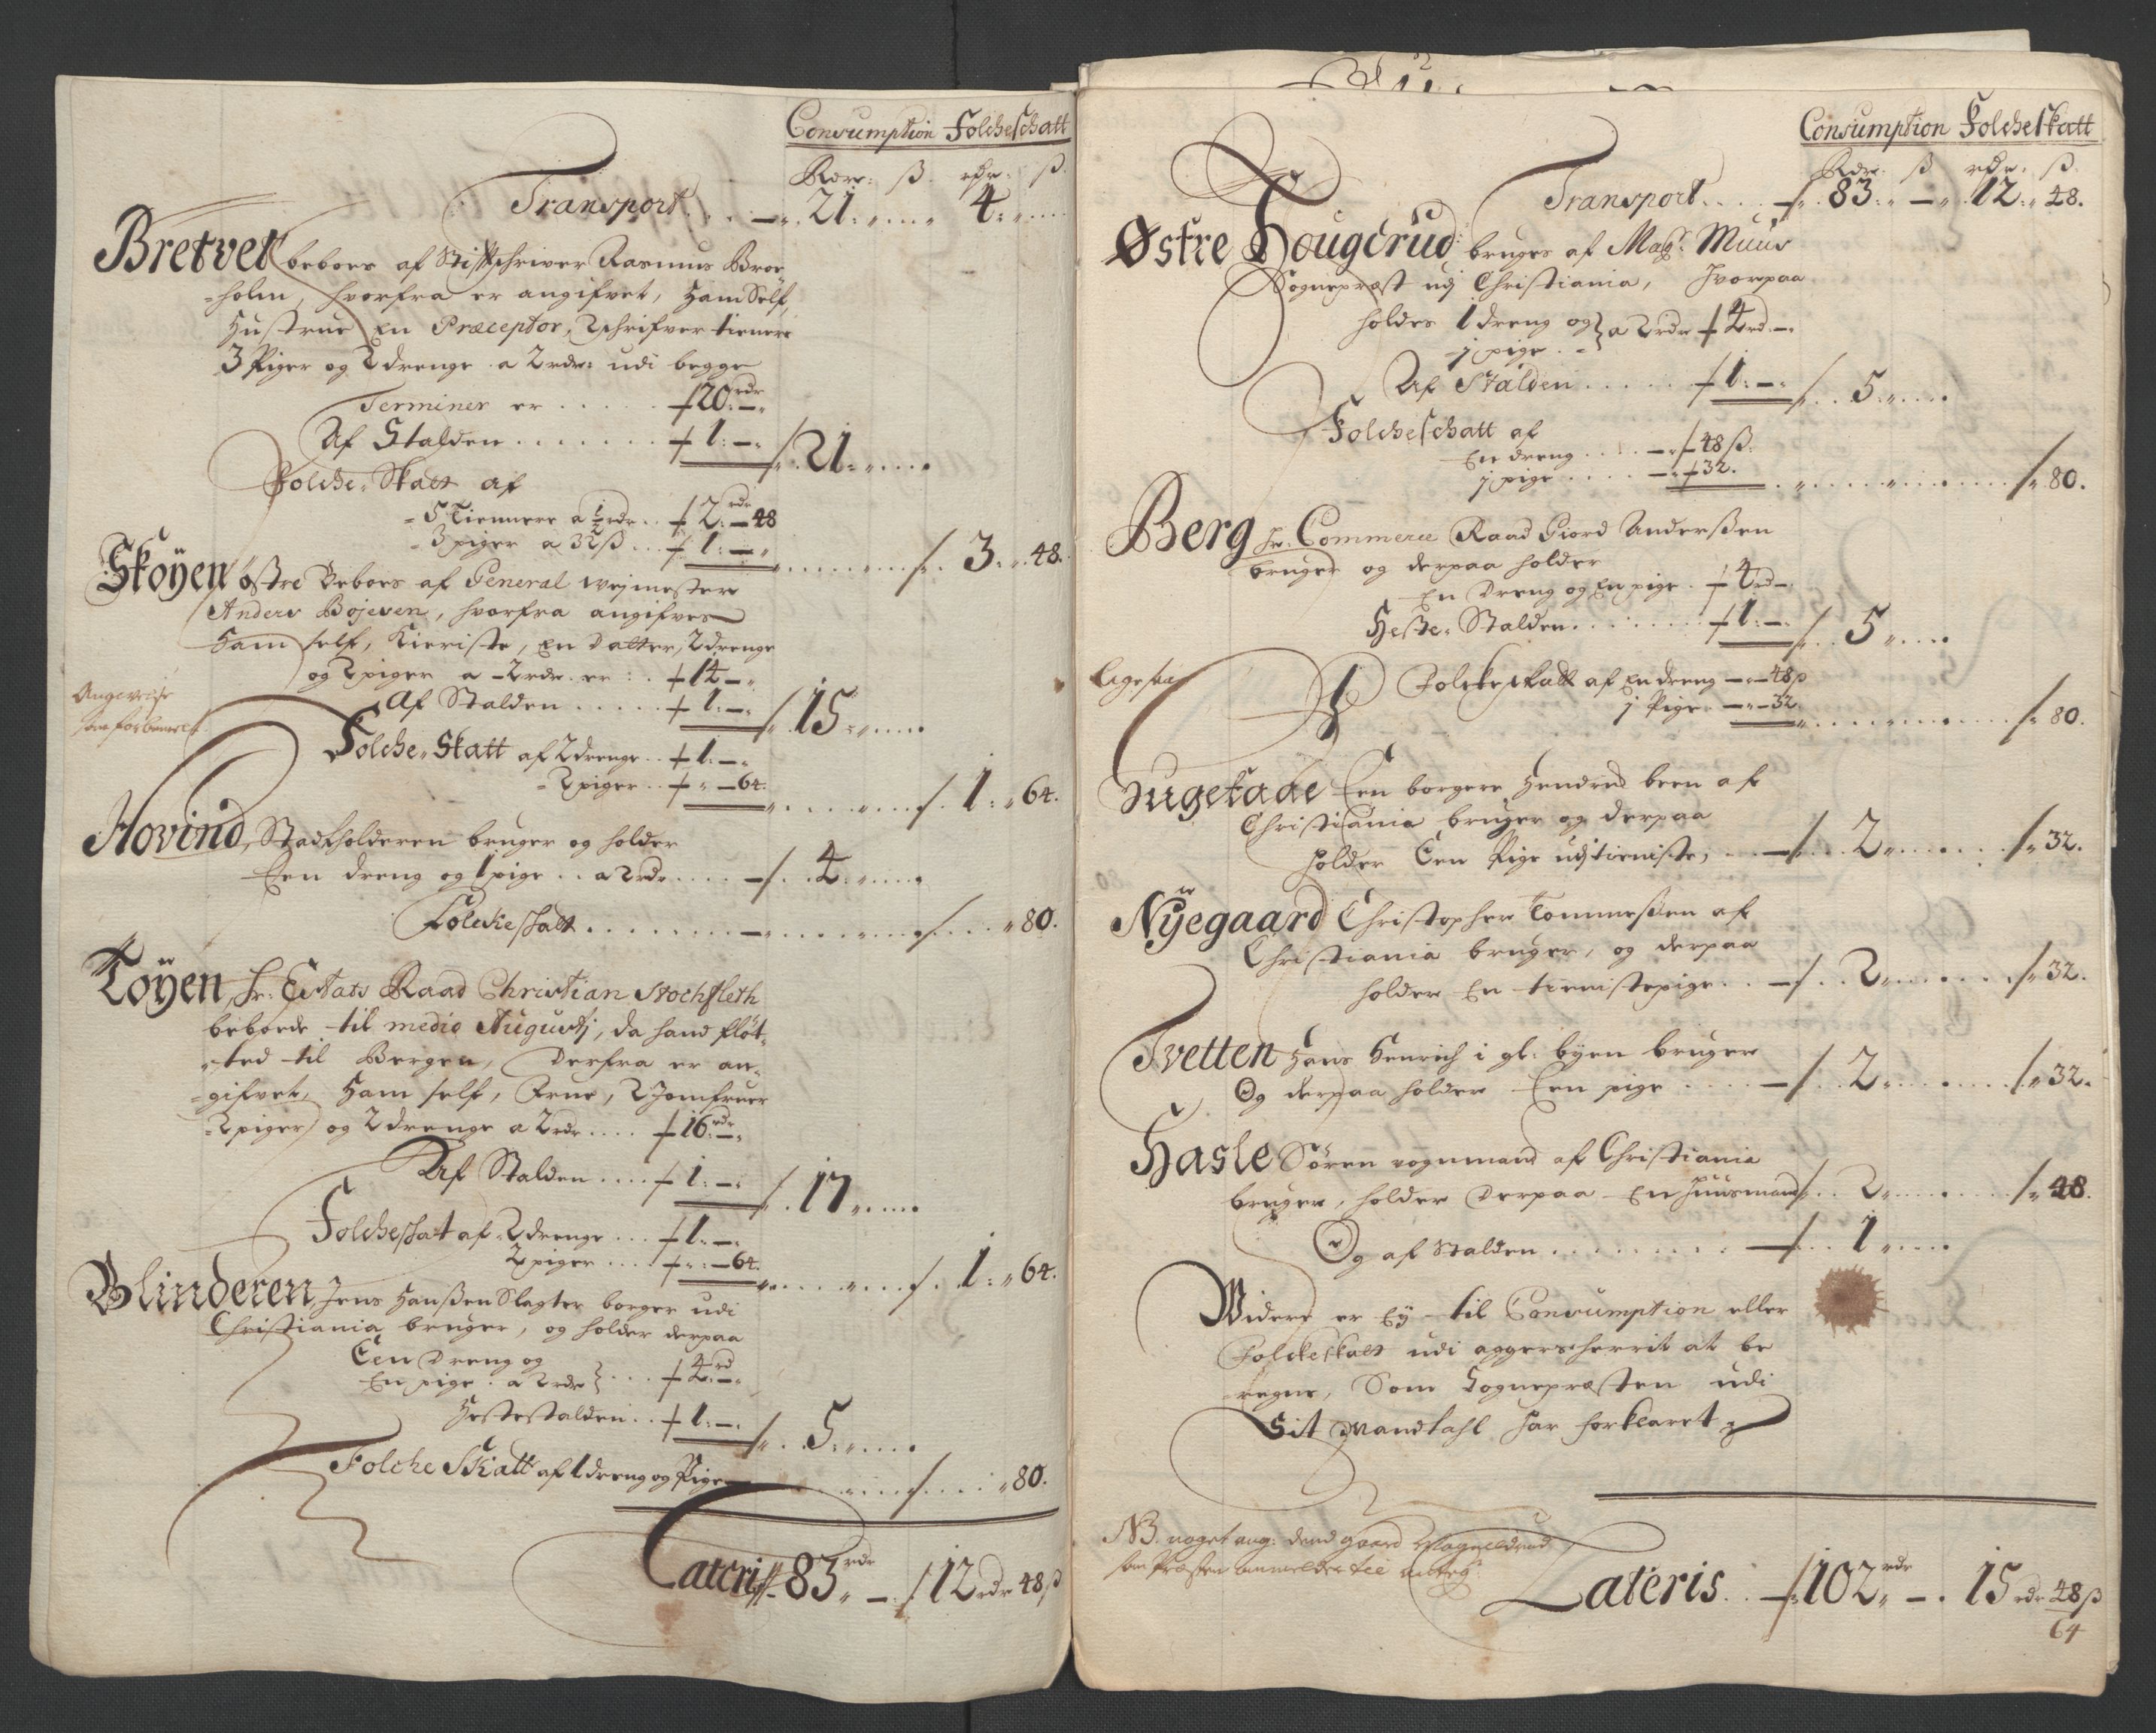 Consumption Folcheschatt
Rdr: ß. rdr: ß.
Transport . . . — 21: . . . 4: . . .
Bretvet beboes af Stiftschriver Rasmus Broe-
holm, hvorfra er angifvet, Ham Self,
Hustrue En Præceptor, 2 schrifver tienere
3 Piger og 2 drenge a 2 rdr: udi begge
Terminer er . . . . . 20 rdr: —
Af Stalden . . . . . . 1: — 21: . . .
Folche-Skatt af
5 Tiennere a ½ rdr . . 2 rdr: — 48
3 piger a 32 ß . . . 1: — . . . 3. 48.
Skoyen østre Beboes af General Vejmester
Anders Bojesen, hvorfra angifves
Ham self, Kieriste, en datter, 2 drenge
og 2 piger a 2 rdr. er : . . 14 —
Angevise
som forbenert
Af Stalden . . . . . 1: — 15: . . .
Folche-Skatt af 2 drenge . . 1: —
2 piger . . — 64. . . . 1: 64.
Hovind, Stadtholderen bruger og holder
Een dreng og 1 pige . . a 2 rdr . . . . — 4: . . .
Folckeskatt . . . . . . . — . . . . . . 80.
Töyen, Hr: Estats Raad Christian Stochfleth
beboede til medio Augustj, da hand fløt-
ted til Bergen, Derfra er an-
gifvet, Ham self, Frue, 2 Jomfruer
2 piger og 2 drenge a 2 rdr . . . . 16 rdr: —
Af Stalden . . . . 1: — 17 . . .
Folcheskat af 2 drenge . . . 1: —
2 piger . . . . : — 64. . . . 1: 64.
Blinderen, Jens Hanßen Slagter borger udi
Christiania bruger, og holder derpaa
Een Dreng og
En pige . a 2 rdr } . . . 4 rd: —
Hestestalden . . 1: — 5: . . .
Folche Skatt af 1 dreng og Pige — . . . . . 80.
Lateris 83 rdr — 12 rdr 48 ß
Consumption Folcheskatt
Rdr. ß rdr: ß.
Transport . . . . — 83: — 12: 48.
Østre Hougerud: bruges af Mag: Muus
Sognepræst udj Christiania, Hvorpaa
holdes 1 dreng og } a 2 rdr 4 rd —
1 pige . .
Af Stalden . . . . . 1: — 5 . . .
Folcheschatt af
En dreng . . . . — 48 ß.
1 pige . . . . — 32. . . . . . . 80.
Berg Hr. Commerce Raad Giord Anderßen
bruger og derpaa holder
En Dreng og En pige . 4 rd —
Heste-Stalden . . . . . . 1: — 5 . . .
Ligesaa
Folckeskatt af En dreng — 48 ß
1 Pige — 32 . . . . . . 80.
Een borger Hendrich been af
Christiania bruger og derpaa
holder Een Pige udj tieniste, . . — 2 . . . . . 32.
Nÿegaard Christopher Tommeßen af
Christiania bruger, og derpaa
holder En tienistepige . . — 2 . . . . . 32.
Tvetten Hans Henrich i gl: byen bruger
Og derpaa holder Een pige . . . . — 2 . . . . . 32.
Hasle Søren vognmand af Christiania
bruger, holder Derpaa En Huusmand . . 2 . . . . . 48.
Og af Stalden . . . . . . . . . — 1 . . .
Widere er Ey til Consumption eller
Folckeskatt udi aggersherrit at be
regne, Som Sognepræsten udi
Sit Mandtahl har forklaret
NB. noget ang: dend gaard
som Præsten anmelder
Lateris . . — 102 rdr — . 15 rdr 48 ß
64